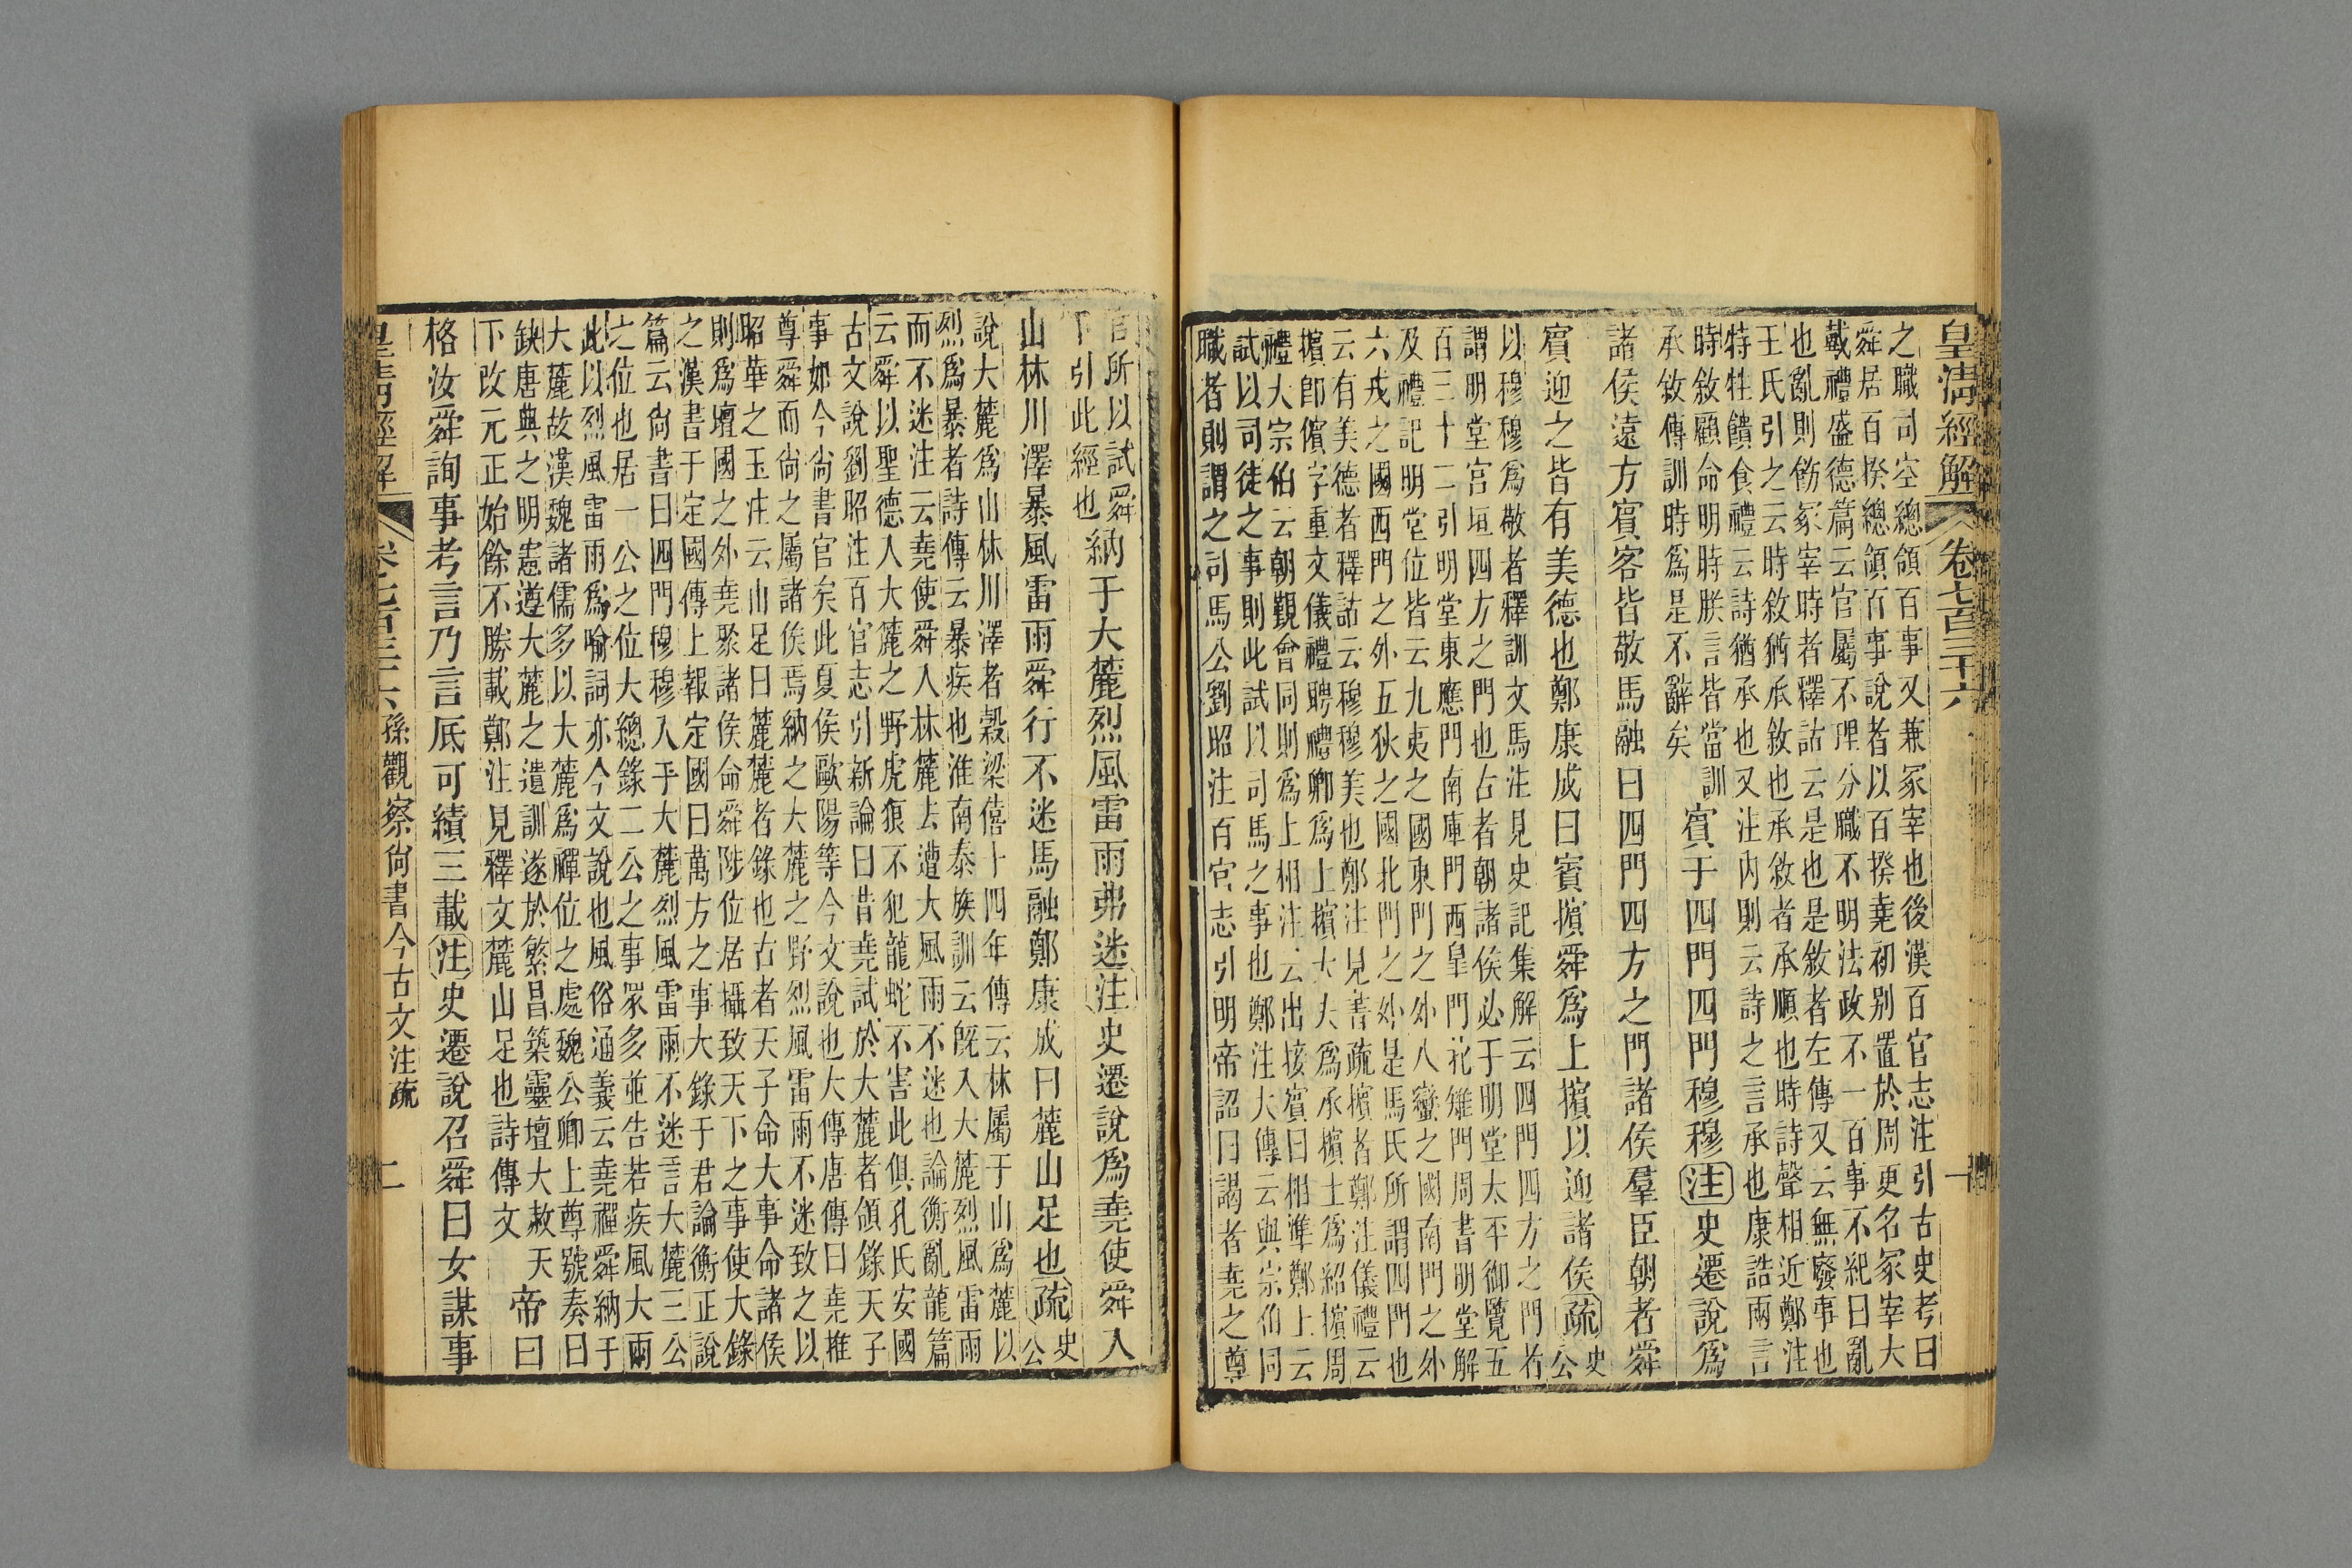 皇清經解 卷七百三十六 一
之職司空總領百事又兼冢宰也後漢百官志注引古史考曰
舜居百揆總領百事說者以百揆堯初别置於周更名冢宰大
戴禮盛德篇云官屬不理分職不明法政不一百事不紀曰亂
也亂則飭冢宰時者釋詁云是也是敘者左傳又云無廢事也
王氏引之云時敘猶承敘也承敘者承順也時詩聲相近鄭注
特牲饋食禮云詩猶承也又注内則云詩之言承也康誥兩言
時敘顧命明時朕言皆當訓
承敘傳訓時爲是不辭矣
賓于四門四門穆穆注史遷說爲
諸侯遠方賓客皆敬馬融曰四門四方之門諸侯羣臣朝者舜
賓迎之皆有美德也鄭康成曰賓擯舜爲上擯以迎諸侯疏史公
以穆穆爲敬者釋訓文馬注見史記集解云四門四方之門者
謂明堂宫垣四方之門也古者朝諸侯必于明堂太平御覽五
百三十二引明堂東應門南庫門西皐門北雉門周書明堂解
及禮記明堂位皆云九夷之國東門之外八蠻之國南門之外
六戎之國西門之外五狄之國北門之外是馬氏所謂四門也
云有美德者釋詁云穆穆美也鄭注見書疏擯者鄭注儀禮云
擯卽儐字重文儀禮聘禮卿爲上擯大夫爲承擯士爲紹擯周
禮大宗伯云朝覲會同則爲上相注云出接賓曰相準鄭上云
試以司徒之事則此試以司馬之事也鄭注大傳云與宗伯同
職者則謂之司馬公劉昭注百官志引明帝詔曰謁者堯之尊
官所以試舜
下引此經也
納于大麓烈風雷雨弗迷注史遷說爲堯使舜入
山林川澤暴風雷雨舜行不迷馬融鄭康成曰麓山足也疏史公
說大麓爲山林川澤者穀梁僖十四年傳云林屬于山爲麓以
烈爲暴者詩傳云暴疾也淮南泰族訓云旣入大麓烈風雷雨
而不迷注云堯使舜入林麓去遭大風雨不迷也論衡亂龍篇
云舜以聖德入大麓之野虎狼不犯龍蛇不害此俱孔氏安國
古文說劉昭注百官志引新論曰昔堯試於大麓者領錄天子
事如今尙書官矣此夏侯歐陽等今文說也大傳唐傳曰堯推
尊舜而尙之屬諸侯焉納之大麓之野烈風雷雨不迷致之以
昭華之玉注云山足曰麓麓者錄也古者天子命大事命諸侯
則爲壇國之外堯聚諸侯命舜陟位居攝致天下之事使大錄
之漢書于定國傳上報定國曰萬方之事大錄于君論衡正說
篇云尙書曰四門穆穆入于大麓烈風雷雨不迷言大麓三公
之位也居一公之位大總錄二公之事衆多並吿若疾風大雨
此以烈風雷雨爲喻詞亦今文說也風俗通義云堯禪舜納于
大麓故漢魏諸儒多以大麓爲禪位之處魏公卿上尊號奏曰
缺唐典之明憲遵大麓之遺訓遂於繁昌築靈壇大赦天
下改元正始餘不勝載鄭注見釋文麓山足也詩傳文
帝曰
格汝舜詢事考言乃言厎可績三載注史遷說召舜曰女謀事
皇清經解 卷七百三十六 孫觀察尙書今古文注疏 二